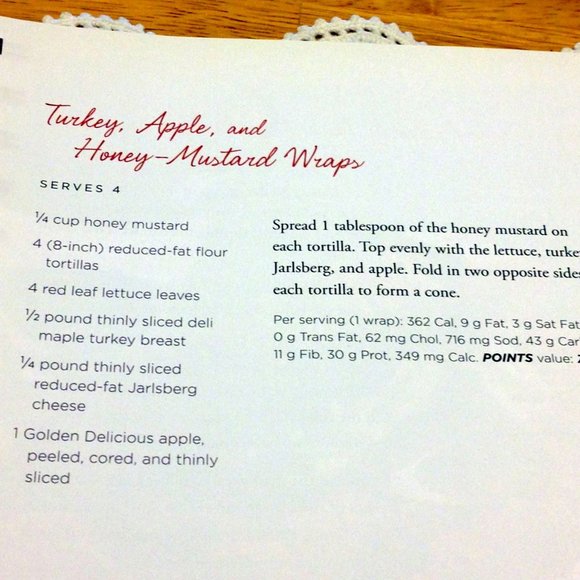 Turkey, Apple, and
Honey-Mustard Wraps
SERVES 4
¼ cup honey mustard
4 (8-inch) reduced-fat flour
tortillas
4 red leaf lettuce leaves
½ pound thinly sliced deli
maple turkey breast
¼ pound thinly sliced
reduced-fat Jarlsberg
cheese
1 Golden Delicious apple,
peeled, cored, and thinly
sliced
Spread 1 tablespoon of the honey mustard on
each tortilla. Top evenly with the lettuce, turkey
Jarlsberg, and apple. Fold in two opposite sides
each tortilla to form a cone.
Per serving (1 wrap): 362 Cal, 9 g Fat, 3 g Sat Fat
0 g Trans Fat, 62 mg Chol, 716 mg Sod, 43 g Car
11 g Fib, 30 g Prot, 349 mg Calc. POINTS value: